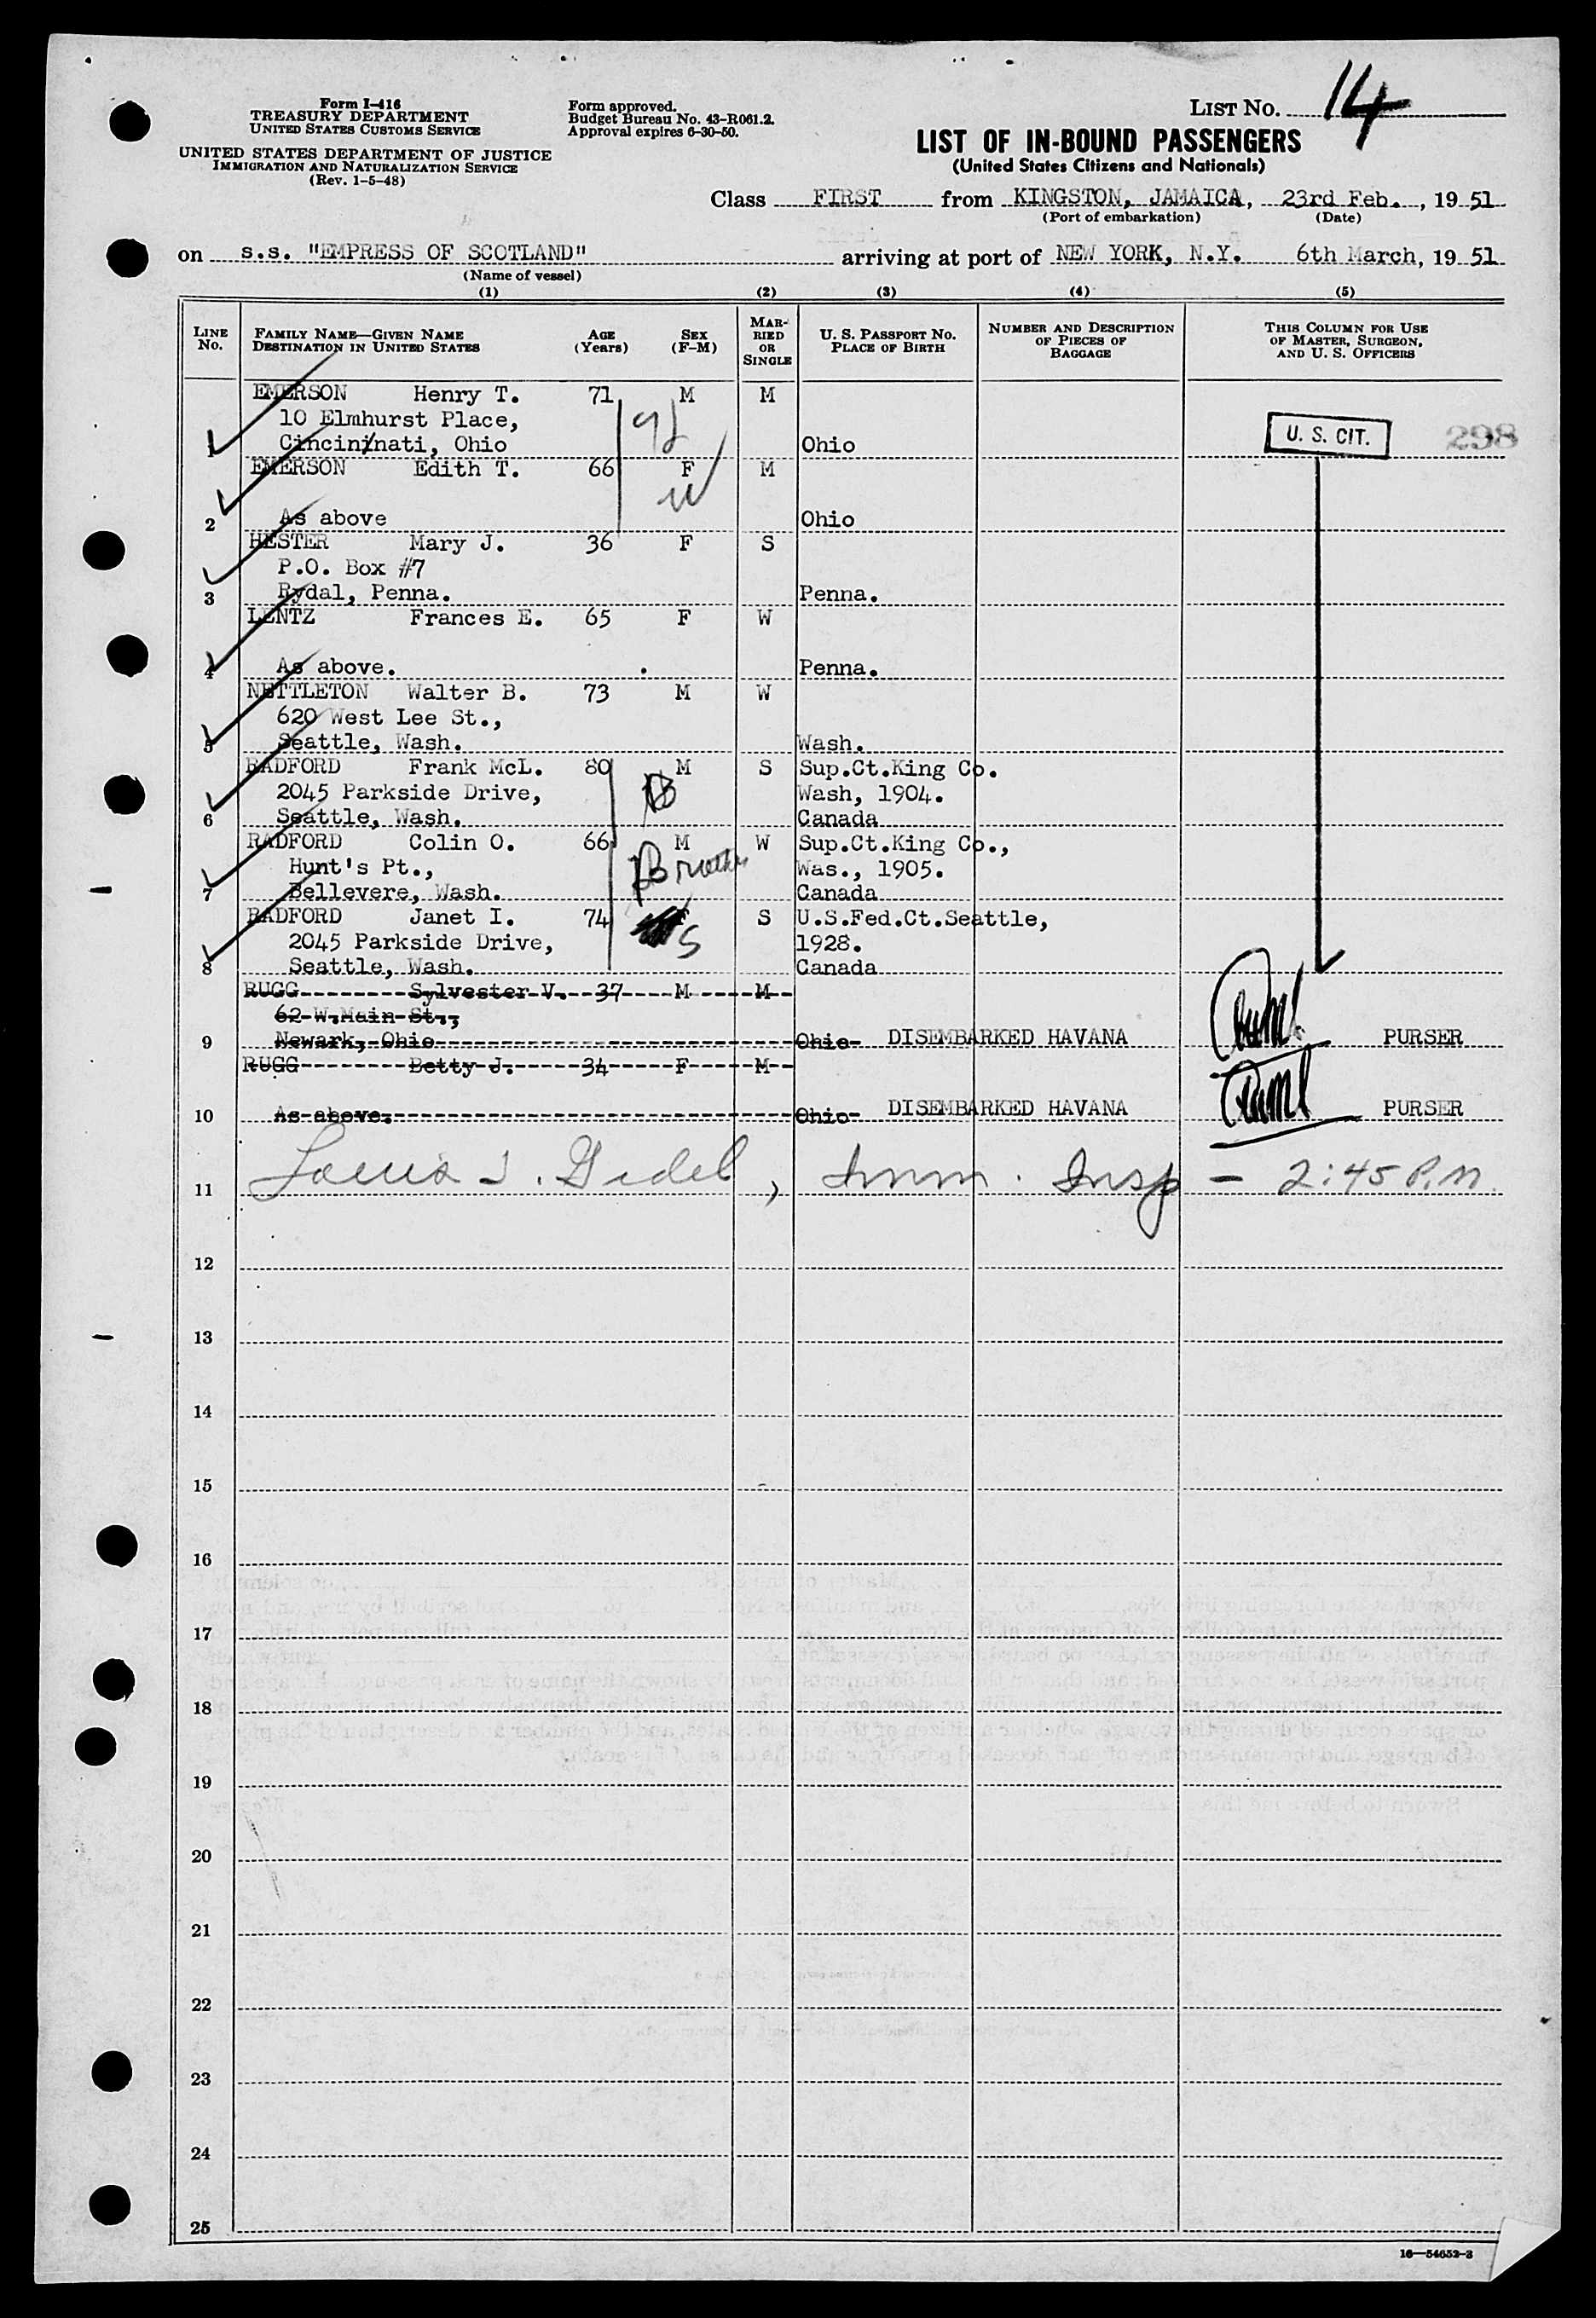 Form I-416
TREASURY DEPARTMENT
UNITED STATES CUSTOMS SERVICE
UNITED STATES DEPARTMENT OF JUSTICE
IMMIGRATION AND NATURALIZATION SERVICE
(Rev. 1-5-48)
Form approved.
Budget Bureau No. 43-R061.2.
Approval expires 6-30-50.
LIST No. 14
LIST OF IN-BOUND PASSENGERS
(United States Citizens and Nationals)
Class FIRST from KINGSTON, JAMAICA, 23rd Feb., 1951
(Port of embarkation) (Date)
on s.s. "EMPRESS OF SCOTLAND" arriving at port of NEW YORK, N.Y. 6th March, 1951
(Name of vessel)
(1) (2) (3) (4) (5)
LINE No. FAMILY NAME—GIVEN NAME DESTINATION IN UNITED STATES AGE (Years) SEX (F-M) MARRIED OR SINGLE U. S. PASSPORT NO. PLACE OF BIRTH NUMBER AND DESCRIPTION OF PIECES OF BAGGAGE THIS COLUMN FOR USE OF MASTER, SURGEON, AND U. S. OFFICERS
EMERSON Henry T. 71 M M
10 Elmhurst Place,
1 Cincin/nati, Ohio Ohio U. S. CIT. 298
EMERSON Edith T. 66 F M
W
2 As above Ohio
HESTER Mary J. 36 F S
P.O. Box #7
3 Rydal, Penna. Penna.
LENTZ Frances E. 65 F W
4 As above. Penna.
NETTLETON Walter B. 73 M W
620 West Lee St.,
5 Seattle, Wash. Wash.
RADFORD Frank McL. 80 M S Sup.Ct.King Co.
2045 Parkside Drive, B Wash, 1904.
6 Seattle, Wash. Canada
RADFORD Colin O. 66 M W Sup.Ct.King Co.,
Hunt's Pt., Brother Was., 1905.
7 Bellevere, Wash. Canada
RADFORD Janet I. 74 F S U.S.Fed.Ct.Seattle,
2045 Parkside Drive, S 1928.
8 Seattle, Wash. Canada
RUGG Sylvester V. 37 M M
62 W.Main St.,
9 Newark, Ohio Ohio DISEMBARKED HAVANA PURSER
RUGG Betty J. 34 F M
10 As above. Ohio DISEMBARKED HAVANA PURSER
11 Louis J. Gidel, Imm. Insp — 2:45 P.M.
12
13
14
15
16
17
18
19
20
21
22
23
24
25
16—54652-3